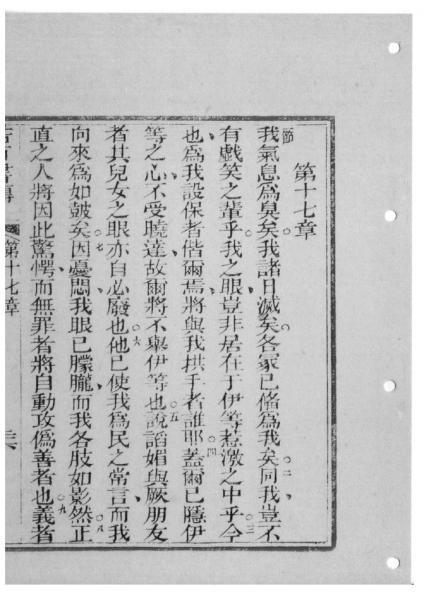 第十七章
節我氣息為臭矣。我諸日滅矣。各冢已俻為我矣。二同我豈不
有戲笑之輩乎。我之眼豈非居在于伊等惹激之中乎。三今
也、為我設保者偕爾焉、將與我拱手者誰耶。四蓋爾已隱伊
等之心不受曉達、故爾將不舉伊等也。五說謟媚與厥朋友
者、其兒女之眼亦自必廢也。六他已使我為民之常言、而我
向來為如皷矣。七因憂悶、我眼已朦朧、而我各肢如影然。八正
直之人將因此驚愕、而無罪者將自動攻偽善者也。九義者
第十七章